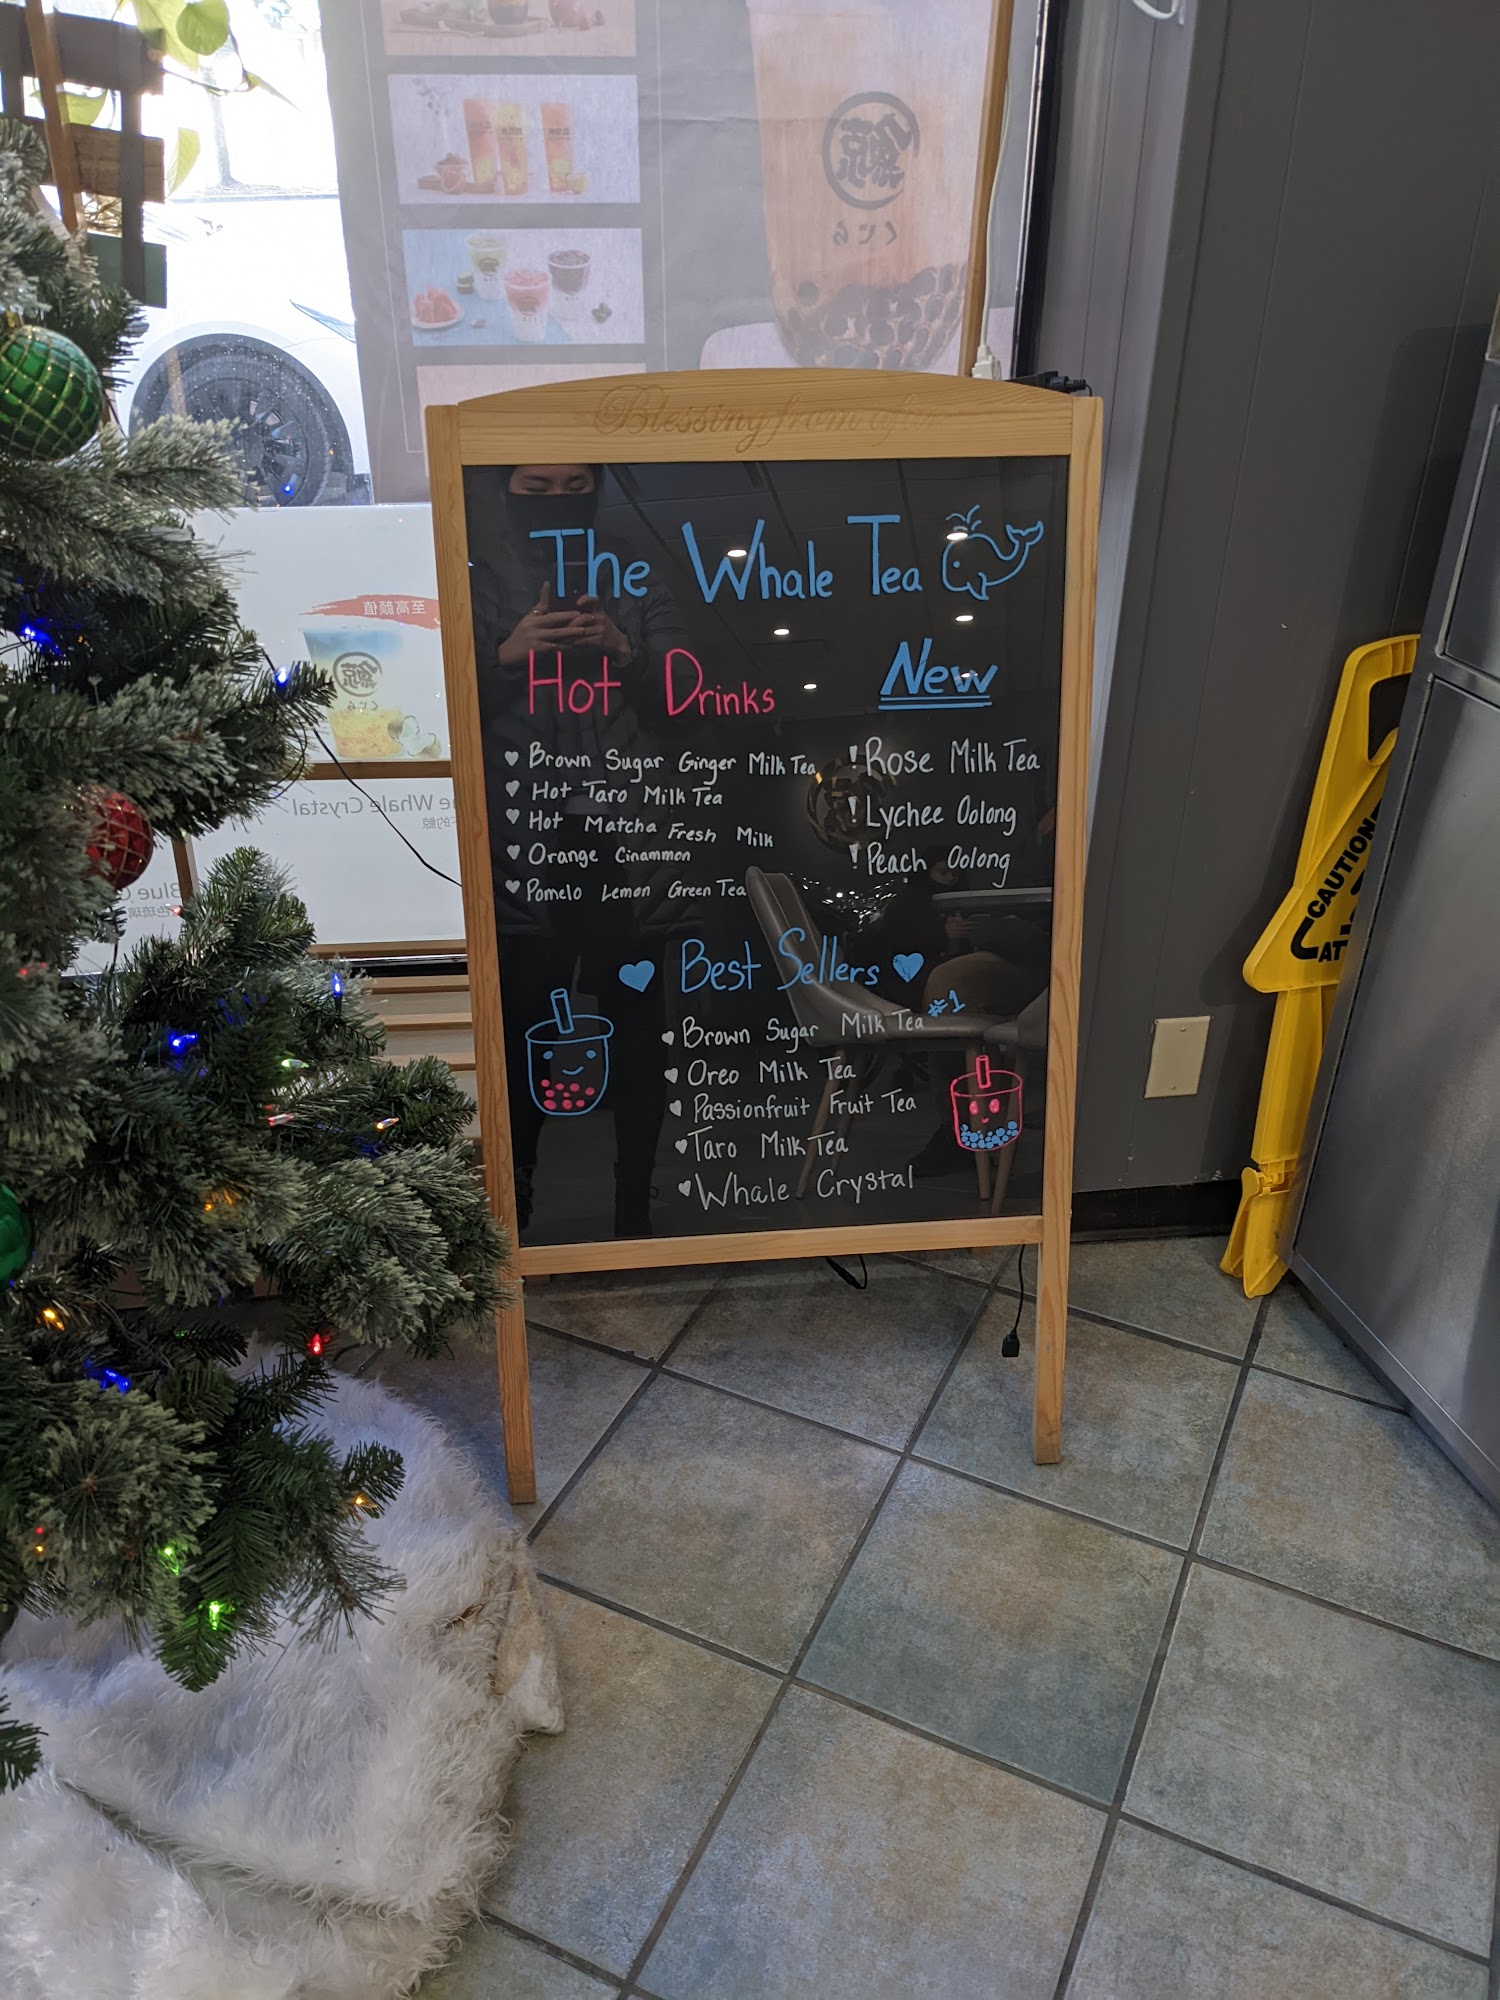 鯨
くじら
Blessing from afar
The Whale Tea
Hot Drinks
Brown Sugar Ginger Milk Tea
Hot Taro Milk Tea
Hot Matcha Fresh Milk
Orange Cinammon
Pomelo Lemon Green Tea
New
! Rose Milk Tea
! Lychee Oolong
! Peach Oolong
Best Sellers
Brown Sugar Milk Tea #1
Oreo Milk Tea
Passionfruit Fruit Tea
Taro Milk Tea
Whale Crystal
至高颜值
鯨
くじら
Whale Crystal
Blue
CAUTION